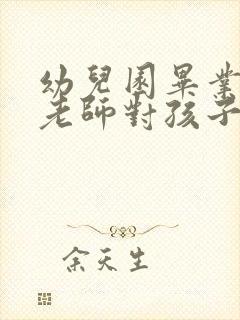 幼兒園畢業
老師對孩子
余天生